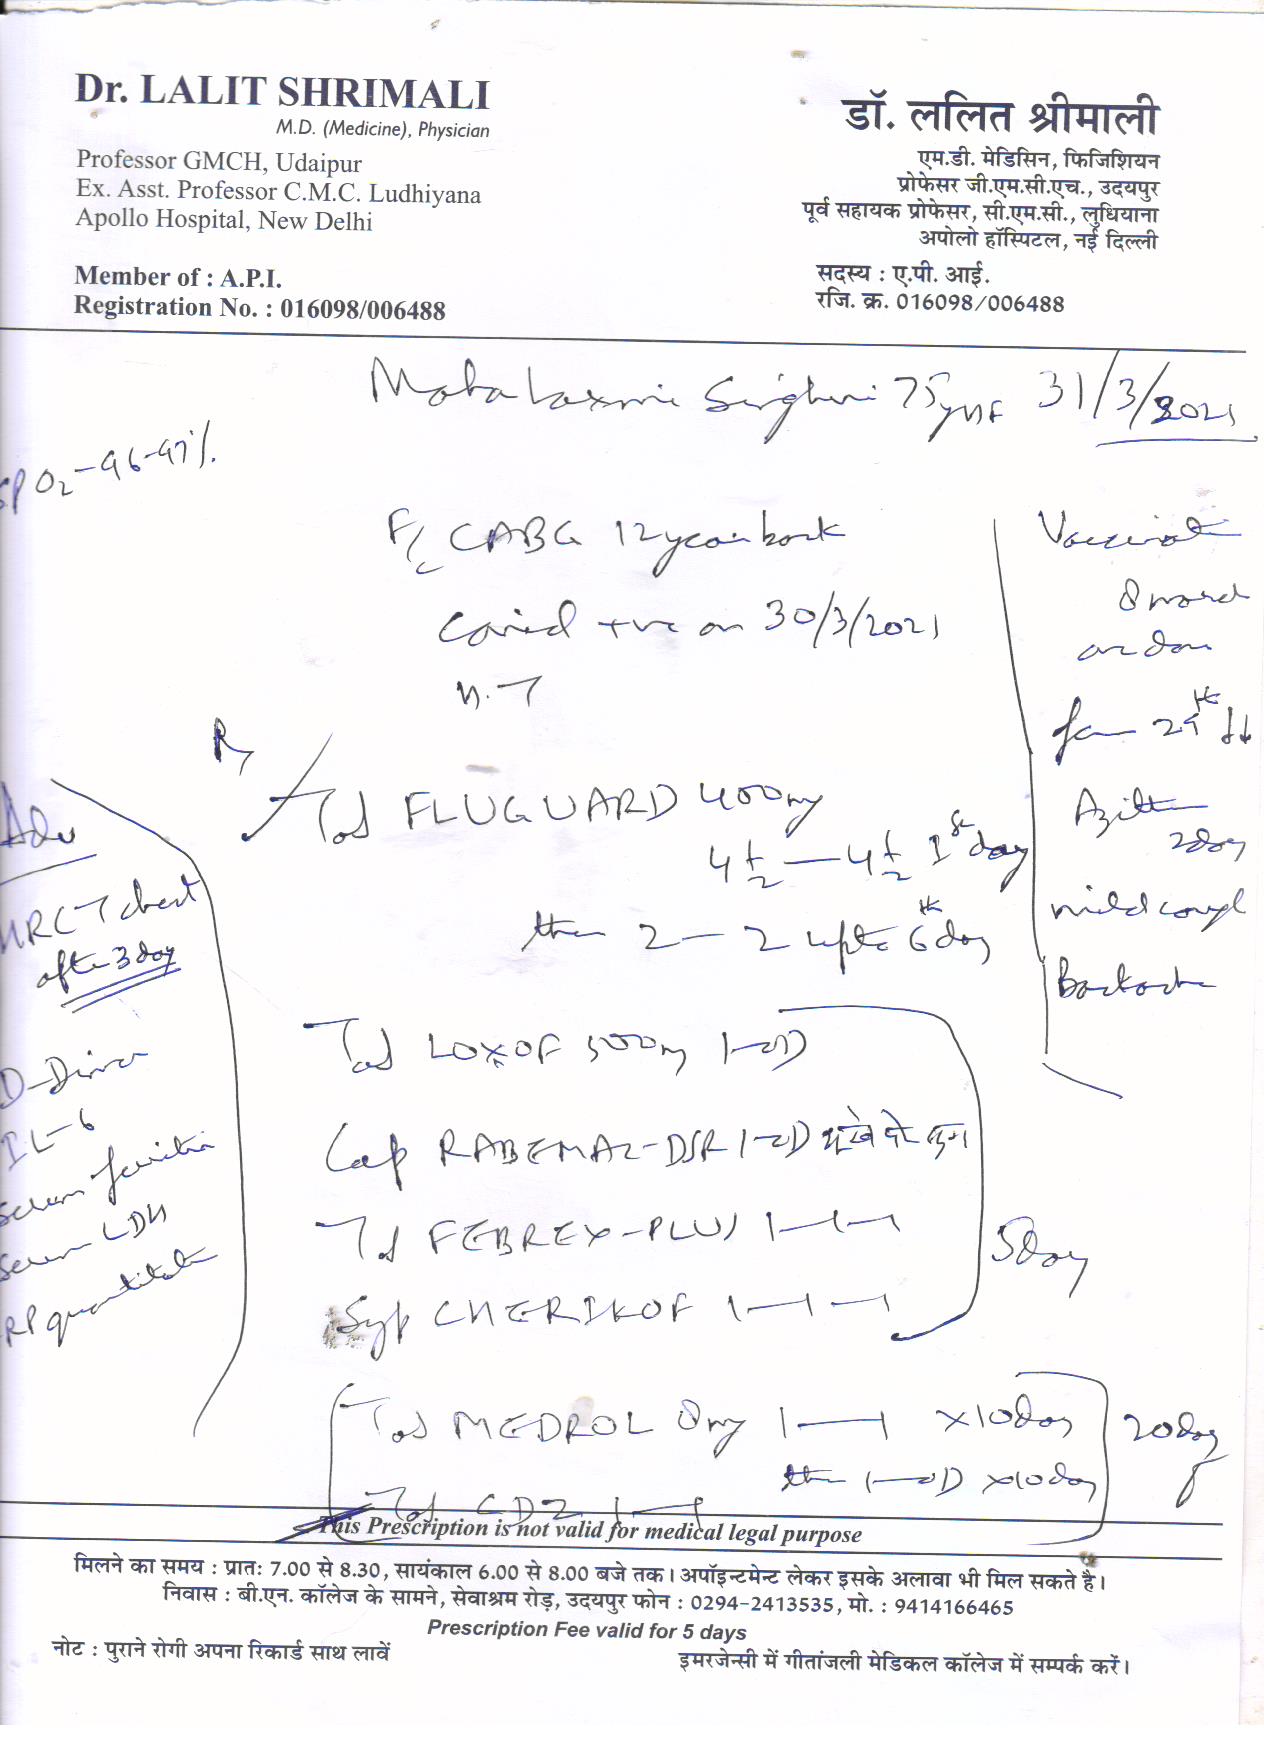 Dr. LALIT SHRIMALI
M.D. (Medicine), Physician
Professor GMCH, Udaipur
Ex. Asst. Professor C.M.C. Ludhiyana
Apollo Hospital, New Delhi
Member of : A.P.I.
Registration No. : 016098/006488
डॉ. ललित श्रीमाली
एम.डी. मेडिसिन, फिजिशियन
प्रोफेसर जी.एम.सी.एच., उदयपुर
पूर्व सहायक प्रोफेसर, सी.एम.सी., लुधियाना
अपोलो हॉस्पिटल, नई दिल्ली
सदस्य : ए.पी. आई.
रजि. क्र. 016098/006488
Mahalaxmi 75 31/3/2021
SPO2-96-97%
CABG 12 year back
Covid +ve on 30/3/2021
Vaccinat
29th
2day
mild cough
Backache
Rx
Tab FLUGUARD 400mg
4 1/2 — 4 1/2 1st day
then 2 — 2 upto 6th day
Adv
HRCT chest
after 3day
D-Dimer
IL-6
Serum ferritin
Serum LDH
CRP quantitative
Tab LOXOF 500mg 1-OD
Cap RABEMAC-DSR 1-OD भूखे पेट
Tab FEBREX-PLUS 1-1-1
Syp CHERIKOF 1-1-1
5day
Tab MEDROL 8mg 1—1 x10day
then 1-OD x10day
20day
Tab 1-1
This Prescription is not valid for medical legal purpose
मिलने का समय : प्रातः 7.00 से 8.30, सायंकाल 6.00 से 8.00 बजे तक। अपॉइन्टमेन्ट लेकर इसके अलावा भी मिल सकते है।
निवास : बी.एन. कॉलेज के सामने, सेवाश्रम रोड़, उदयपुर फोन : 0294-2413535, मो. : 9414166465
Prescription Fee valid for 5 days
नोट : पुराने रोगी अपना रिकार्ड साथ लावें
इमरजेन्सी में गीतांजली मेडिकल कॉलेज में सम्पर्क करें।